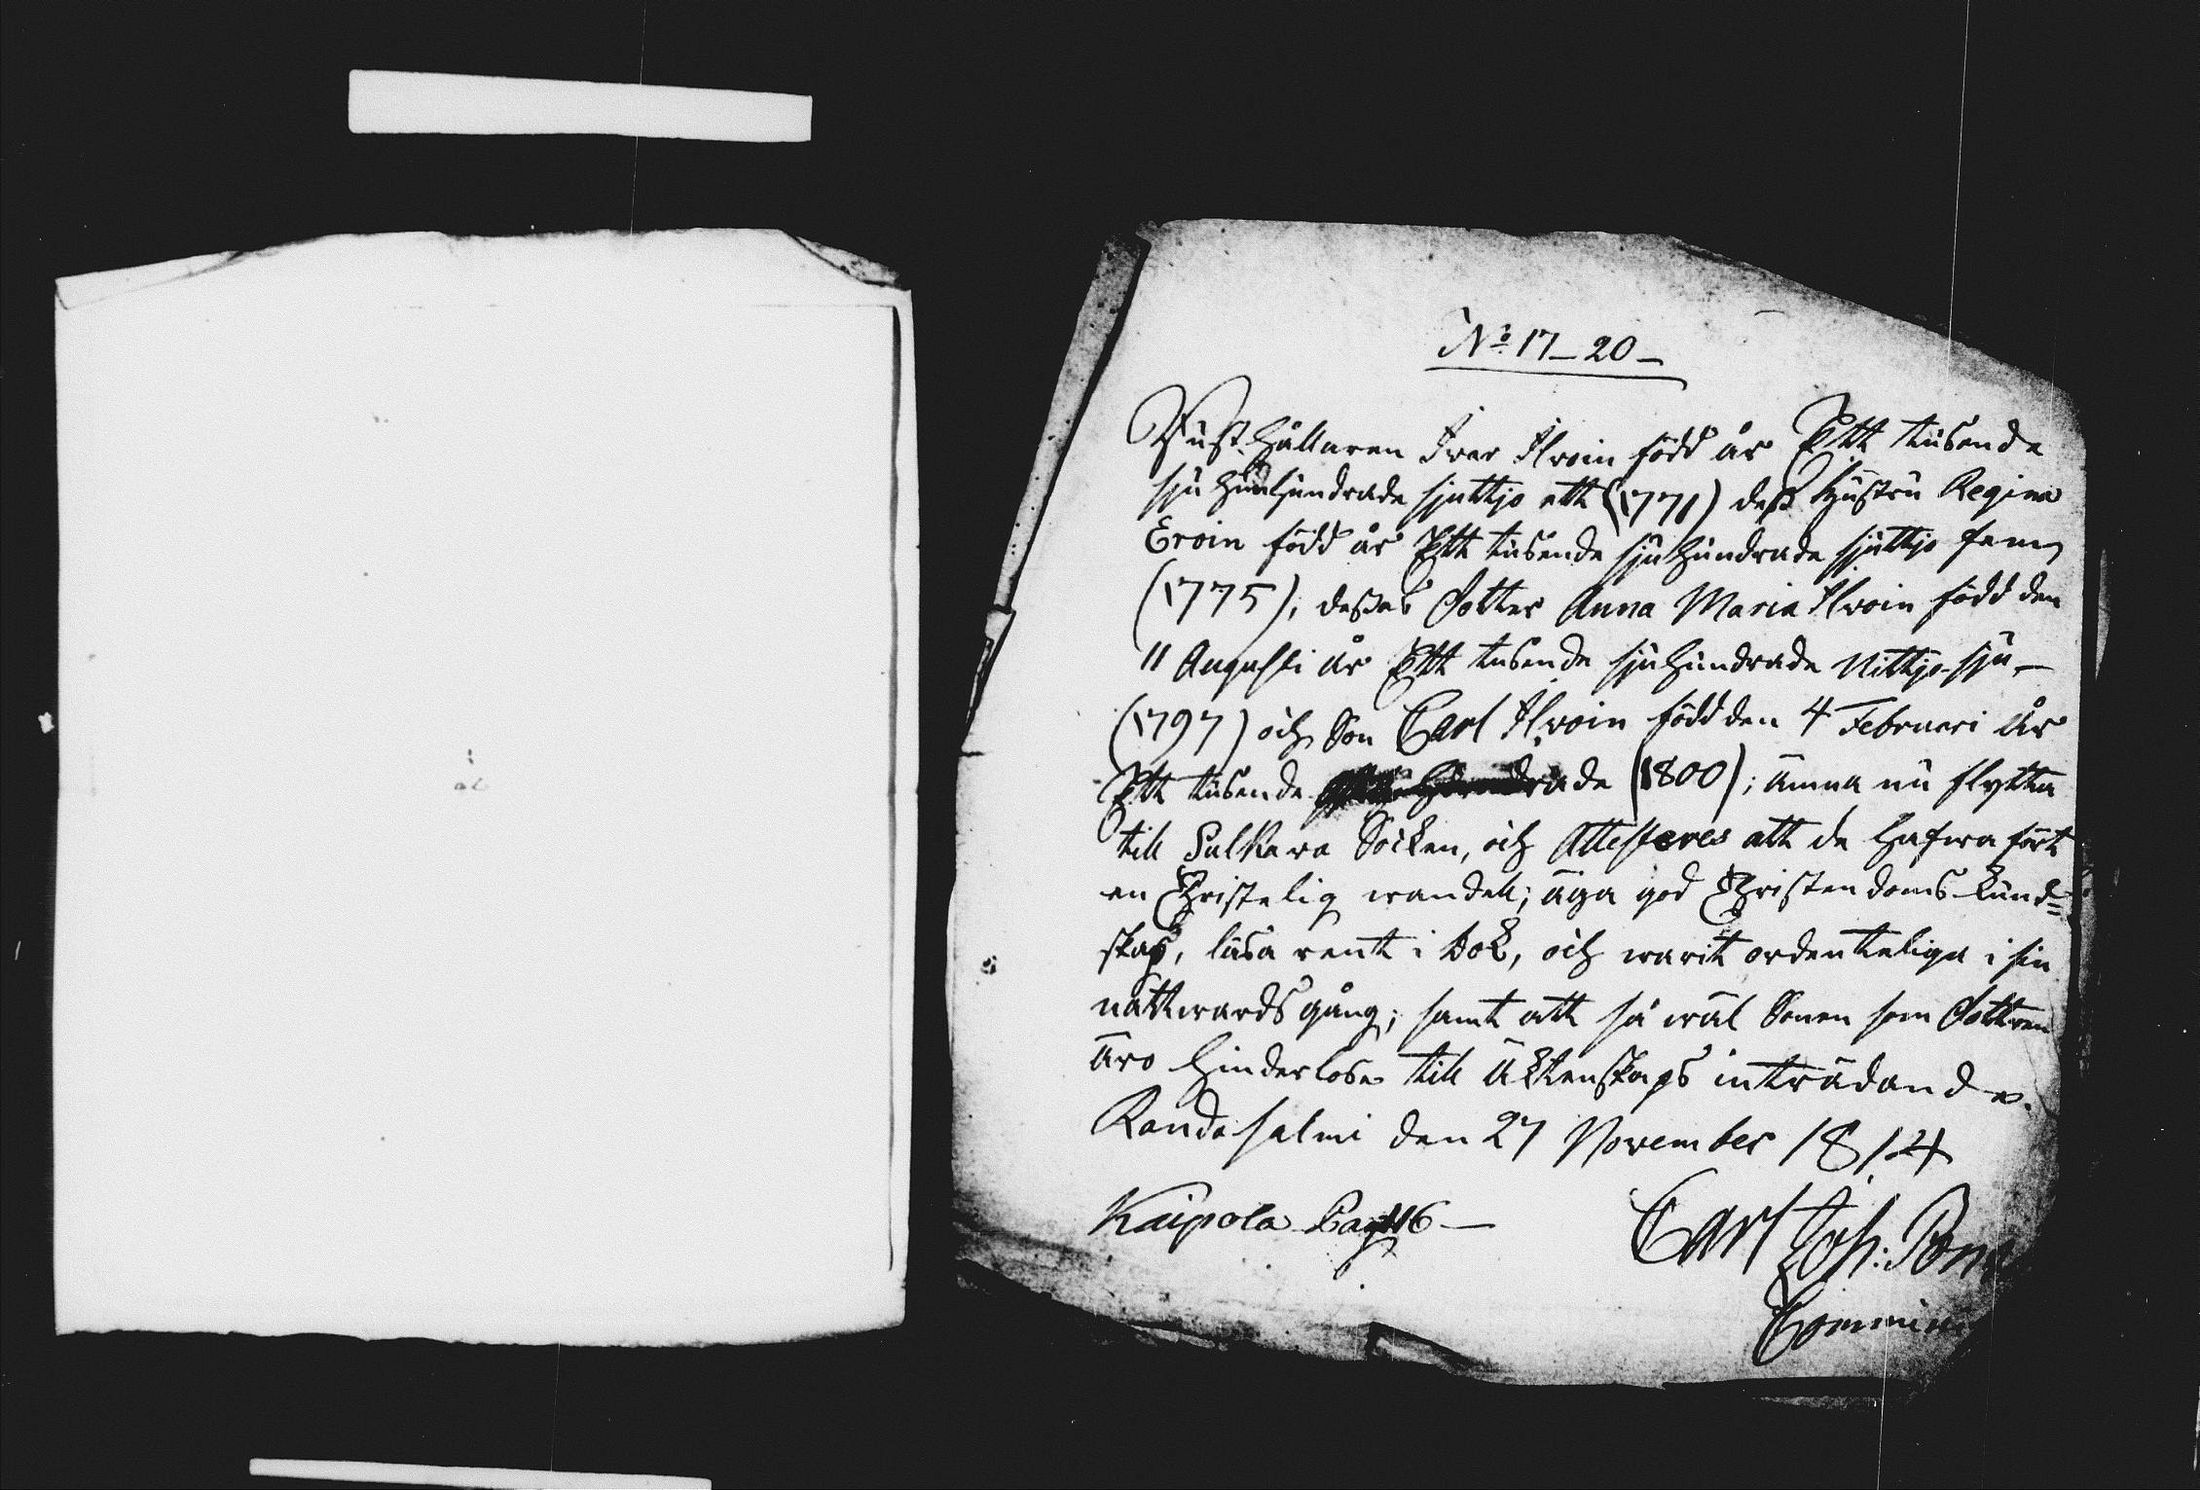 No 17–20–
Rusthållaren Ivar Ilvoin född år Ett tusende
sju hundrade sjuttjo ett (1771) dess Hustru Regina
Eroin född år Ett tusende sju hundrade sjuttjo fem
(1775); dessas Dotter Anna Maria Ilvoin född den
11 Augusti år Ett tusende sju hundrade Nittjo sju –
(1797) och Son Carl Ilvoin född den 4 Februari år
Ett tusende hundrade (1800); ämna nu flytta
till Sulkava Socken, och Attesteres att de hafwa fört
en Christelig wandel; äga god Christendoms kund=
skap, läsa rent i bok, och warit ordenteliga i sin
nattwards gång; samt att så wäl Sonen som Dottren
äro hinderlöse till Äktenskaps inträdande.
Randasalmi den 27 November 1814
Kaipola Pag 116 – Carl Joh: